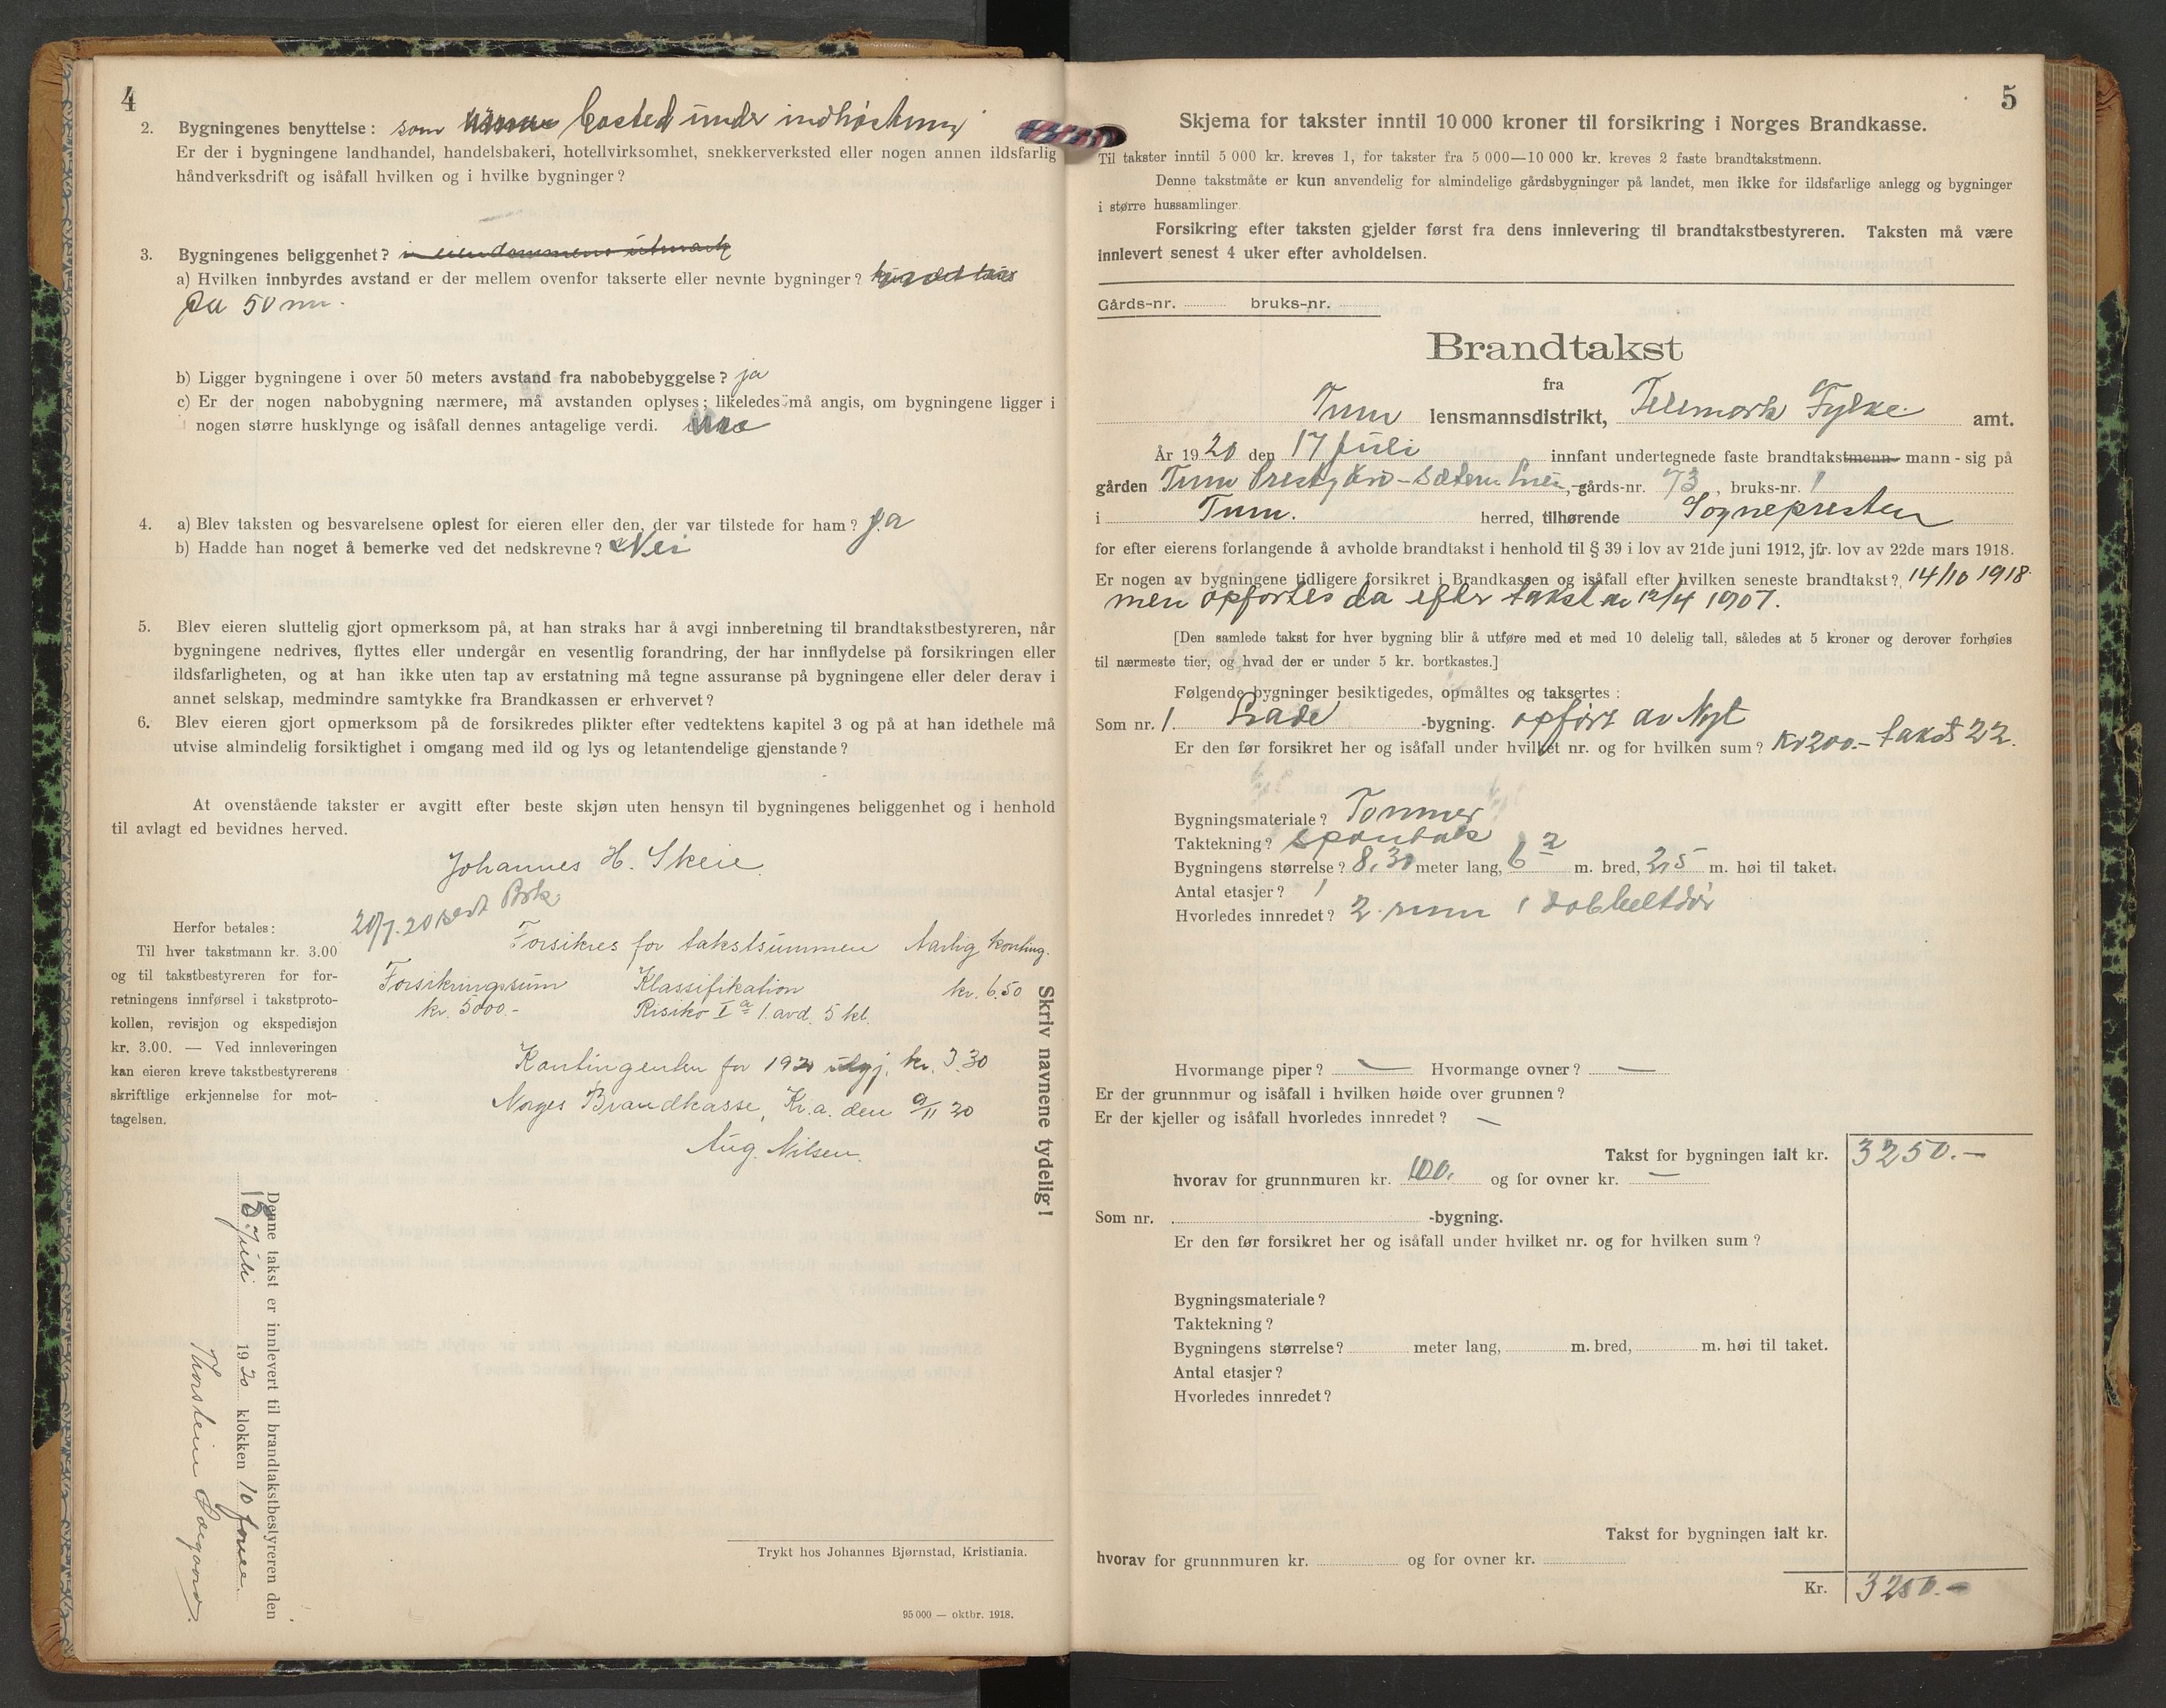 4
2. Bygningenes benyttelse: som bosted under indhøstning
Er der i bygningene landhandel, handelsbakeri, hotellvirksomhet, snekkerverksted eller nogen annen ildsfarlig
håndverksdrift og isåfall hvilken og i hvilke bygninger?
3. Bygningenes beliggenhet? i eiendommens utmark
a) Hvilken innbyrdes avstand er der mellem ovenfor takserte eller nevnte bygninger?
50 m.
b) Ligger bygningene i over 50 meters avstand fra nabobebyggelse? ja
c) Er der nogen nabobygning nærmere, må avstanden oplyses; likeledes må angis, om bygningene ligger i
nogen større husklynge og isåfall dennes antagelige verdi.
4. a) Blev taksten og besvarelsene oplest for eieren eller den, der var tilstede for ham? ja
b) Hadde han noget å bemerke ved det nedskrevne? Nei
5. Blev eieren sluttelig gjort opmerksom på, at han straks har å avgi innberetning til brandtakstbestyreren, når
bygningene nedrives, flyttes eller undergår en vesentlig forandring, der har innflydelse på forsikringen eller
ildsfarligheten, og at han ikke uten tap av erstatning må tegne assuranse på bygningene eller deler derav i
annet selskap, medmindre samtykke fra Brandkassen er erhvervet?
6. Blev eieren gjort opmerksom på de forsikredes plikter efter vedtektens kapitel 3 og på at han idethele må
utvise almindelig forsiktighet i omgang med ild og lys og letantendelige gjenstande?
At ovenstående takster er avgitt efter beste skjøn uten hensyn til bygningenes beliggenhet og i henhold
til avlagt ed bevidnes herved.
Johannes H. Skeie.
20/7. 20 sendt Brk
Herfor betales:
Til hver takstmann kr. 3.00
og til takstbestyreren for for-
retningens innførsel i takstproto-
kollen, revisjon og ekspedisjon
kr. 3.00. — Ved innleveringen
kan eieren kreve takstbestyrerens
skriftlige erkjennelse for mot-
tagelsen.
Forsikres for takstsummen Aarlig konting.
Forsikringssum Klassifikation kr. 6.50
kr. 5000.- Risiko I a 1. avd. 5 kl.
Kontingenten for 1920 utgj. kr. 3.30
Norges Brandkasse, Kr.a. den 9/11 20
Aug. Nilsen.
Skriv navnene tydelig!
Denne takst er innlevert til brandtakstbestyreren den
18. Juli 1920 klokken 10 form.
Thorstein
Trykt hos Johannes Bjørnstad, Kristiania.
95 000 — oktbr. 1918.
5
Skjema for takster inntil 10 000 kroner til forsikring i Norges Brandkasse.
Til takster inntil 5 000 kr. kreves 1, for takster fra 5 000—10 000 kr. kreves 2 faste brandtakstmenn.
Denne takstmåte er kun anvendelig for almindelige gårdsbygninger på landet, men ikke for ildsfarlige anlegg og bygninger
i større hussamlinger.
Forsikring efter taksten gjelder først fra dens innlevering til brandtakstbestyreren. Taksten må være
innlevert senest 4 uker efter avholdelsen.
Gårds-nr. bruks-nr.
Brandtakst
fra
Tinn lensmannsdistrikt, Telemark Fylke amt.
År 1920 den 17 Juli innfant undertegnede faste brandtakstmenn- mann - sig på
gården Tinn Prestg gårds-nr. 73, bruks-nr. 1
i Tinn. herred, tilhørende Sognepresten
for efter eierens forlangende å avholde brandtakst i henhold til § 39 i lov av 21de juni 1912, jfr. lov av 22de mars 1918.
Er nogen av bygningene tidligere forsikret i Brandkassen og isåfall efter hvilken seneste brandtakst? 14/10 1918
men opførtes da efter takst av 12/4 1907.
[Den samlede takst for hver bygning blir å utføre med et med 10 delelig tall, således at 5 kroner og derover forhøies
til nærmeste tier, og hvad der er under 5 kr. bortkastes.]
Følgende bygninger besiktigedes, opmåltes og taksertes:
Som nr. 1 Lade -bygning. opført av Nyt
Er den før forsikret her og isåfall under hvilket nr. og for hvilken sum? Kr 200.- takst 22.
Bygningsmateriale? Tømmer
Taktekning? spontak
Bygningens størrelse? 8,30 meter lang, 6 m. bred, 2,5 m. høi til taket.
Antal etasjer? 1
Hvorledes innredet? 2 rum 1 dobbeltdør
Hvormange piper? — Hvormange ovner? —
Er der grunnmur og isåfall i hvilken høide over grunnen?
Er der kjeller og isåfall hvorledes innredet? —
Takst for bygningen ialt kr. 3250.—
hvorav for grunnmuren kr. 100. og for ovner kr. —
Som nr. -bygning.
Er den før forsikret her og isåfall under hvilket nr. og for hvilken sum?
Bygningsmateriale?
Taktekning?
Bygningens størrelse? meter lang, m. bred, m. høi til taket.
Antal etasjer?
Hvorledes innredet?
Takst for bygningen ialt kr.
hvorav for grunnmuren kr. og for ovner kr.
Kr. 3250.—